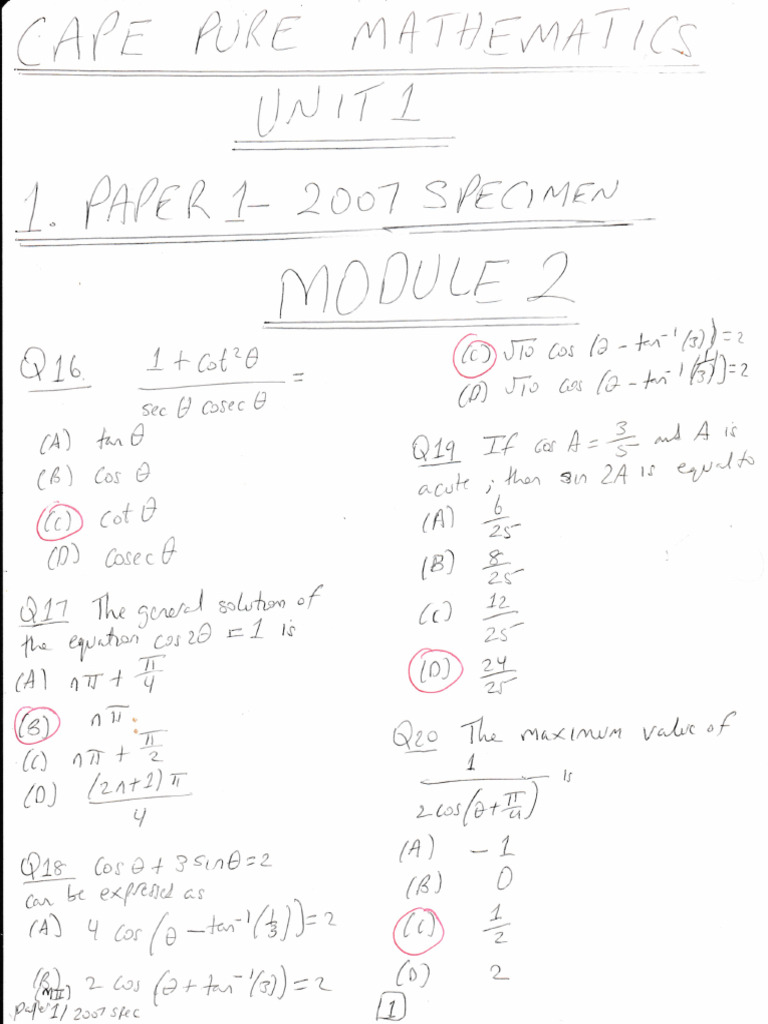 CAPE PURE MATHEMATICS
UNIT 1
1. PAPER 1 - 2007 SPECIMEN
MODULE 2
Q16 (1 + cot²θ) / (sec θ cosec θ) =
(A) tan θ
(B) cos θ
(C) cot θ
(D) cosec θ
Q17 The general solution of
the equation cos 2θ = 1 is
(A) nπ + π/4
(B) nπ
(C) nπ + π/2
(D) (2n+1)π / 4
Q18 cos θ + 3 sin θ = 2
can be expressed as
(A) 4 cos (θ - tan⁻¹(1/3)) = 2
(B) 2 cos (θ + tan⁻¹(3)) = 2
(MII)
paper 1/2007 spec
(C) √10 cos (θ - tan⁻¹(3)) = 2
(D) √10 cos (θ - tan⁻¹(1/3)) = 2
Q19 If cos A = 3/5 and A is
acute, then sin 2A is equal to
(A) 6/25
(B) 8/25
(C) 12/25
(D) 24/25
Q20 The maximum value of
1 / (2 cos (θ + π/4)) is
(A) -1
(B) 0
(C) 1/2
(D) 2
1